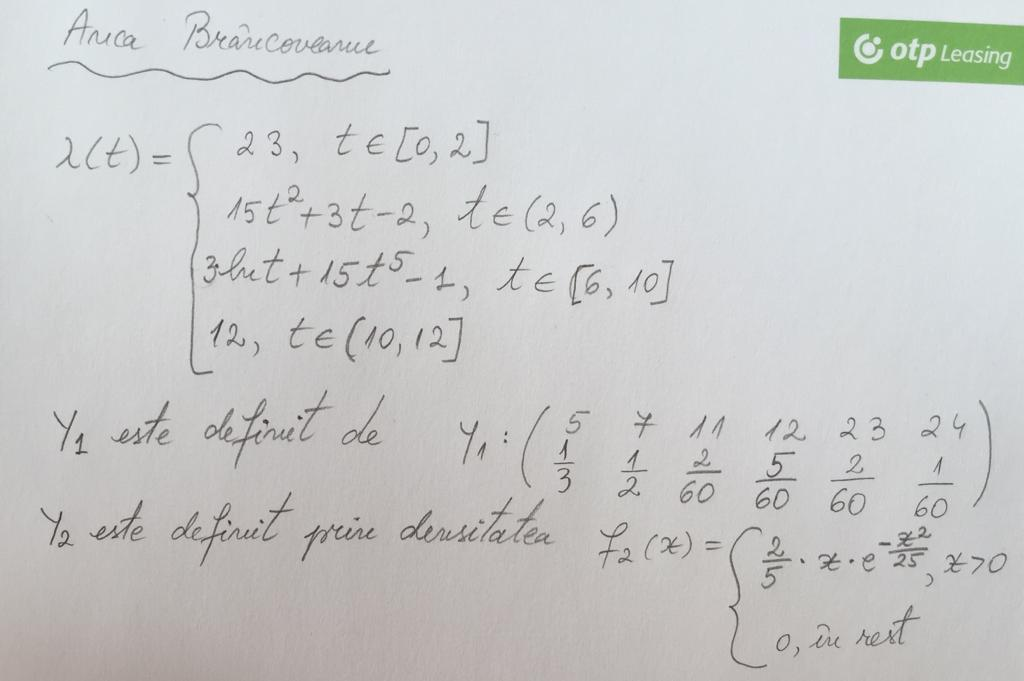 Anca Brâncoveanu
otp Leasing
λ(t) = { 23, t ∈ [0, 2]
15t² + 3t - 2, t ∈ (2, 6)
3 ln t + 15t⁵ - 1, t ∈ [6, 10]
12, t ∈ (10, 12]
Y₁ este definit de Y₁ : ( 5 7 11 12 23 24
1/3 1/2 2/60 5/60 2/60 1/60 )
Y₂ este definit prin densitatea f₂(x) = { 2/5 · x · e^(-x²/25), x > 0
0, în rest